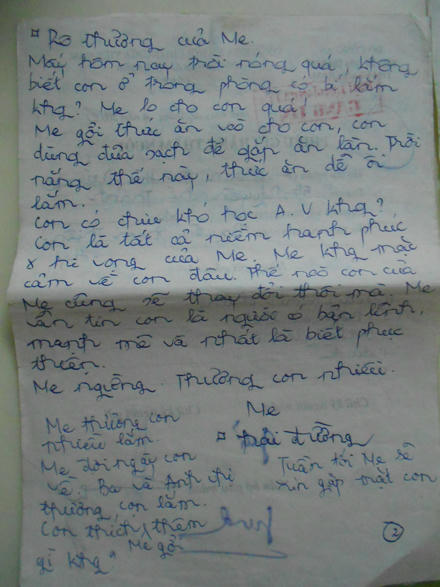 ¤ Bé thương của Mẹ.
Mấy hôm nay trời nóng quá, không
biết con ở trong phòng có bí lắm
khg? Mẹ lo cho con quá!
Mẹ gởi thức ăn vô cho con, con
dùng đũa sạch để gắp ăn lần. Trời
nắng thế này, thức ăn dễ ôi
lắm.
Con có chịu khó học A.V khg?
Con là tất cả niềm hạnh phúc
& hi vọng của Mẹ. Mẹ khg mặc
cảm về con đâu. Thế nào con của
Mẹ cũng sẽ thay đổi thôi mà. Mẹ
vẫn tin con là người có bản lĩnh,
mạnh mẽ và nhất là biết phục
thiện.
Mẹ ngừng. Thương con nhiều.
Mẹ
Mẹ thương con
nhiều lắm.
Mẹ đợi ngày con
về. Ba và anh chị
thương con lắm.
Con thích thêm
gì khg" Mẹ gởi
¤
Tuần tới Mẹ sẽ
xin gặp mặt con
2